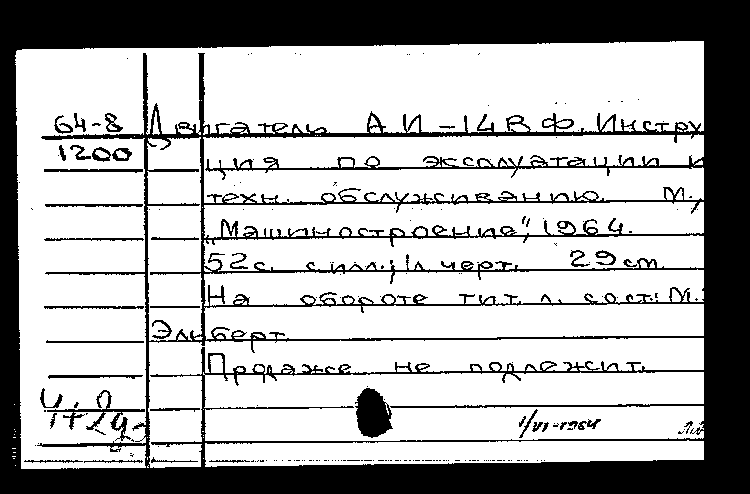 64-8
1200
Двигатель АИ-14ВФ. Инстру
ция по эксплуатации и
техн. обслуживанию. М.,
„Машиностроение", 1964.
52с. с илл.; 1л черт. 29 см.
На обороте тит. л. сост: М.
Эльберт
Продаже не подлежит.
1/VI-1964